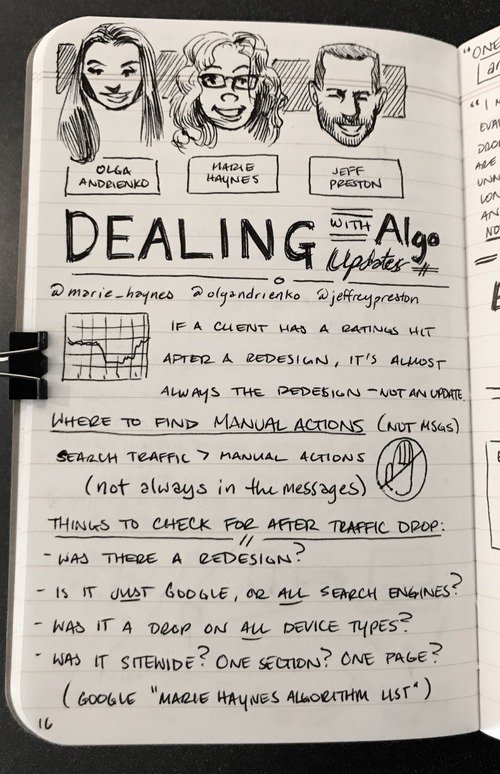 OLGA ANDRIENKO
MARIE HAYNES
JEFF PRESTON
DEALING WITH Algo Updates
@marie_haynes @olgandrienko @jeffreypreston
IF A CLIENT HAS A RATINGS HIT
AFTER A REDESIGN, IT'S ALMOST
ALWAYS THE REDESIGN - NOT AN UPDATE.
WHERE TO FIND MANUAL ACTIONS (NOT MSGS)
SEARCH TRAFFIC > MANUAL ACTIONS
(not always in the messages)
THINGS TO CHECK FOR AFTER TRAFFIC DROP:
- WAS THERE A REDESIGN?
- IS IT JUST GOOGLE, OR ALL SEARCH ENGINES?
- WAS IT A DROP ON ALL DEVICE TYPES?
- WAS IT SITEWIDE? ONE SECTION? ONE PAGE?
(GOOGLE "MARIE HAYNES ALGORITHM LIST")
16
"ONE